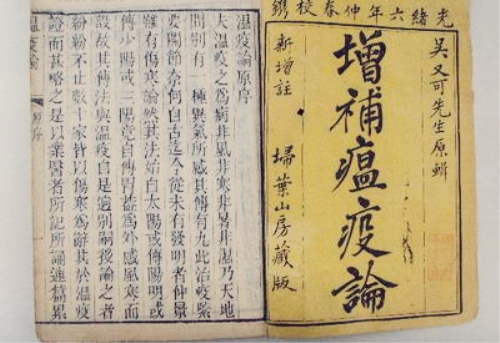 光緒六年仲春校鐫
吳又可先生原輯
增補瘟疫論
新增註 掃葉山房藏版
溫疫論原序
夫溫疫之為病非風非寒非暑非濕乃天地
間別有一種異氣所感其傳有九此治疫緊
要關節奈何自古迄今從未有發明者仲景
雖有傷寒論然其法始自太陽或傳陽明或
少陽或三陽竟自傳胃葢為外感風寒而
設故其傳法與溫疫自是逈別嗣後論之者
紛紛不止數十家皆以傷寒為辭其於溫疫
證而甚略之是以業醫者所記所論連篇累
溫疫論 原序